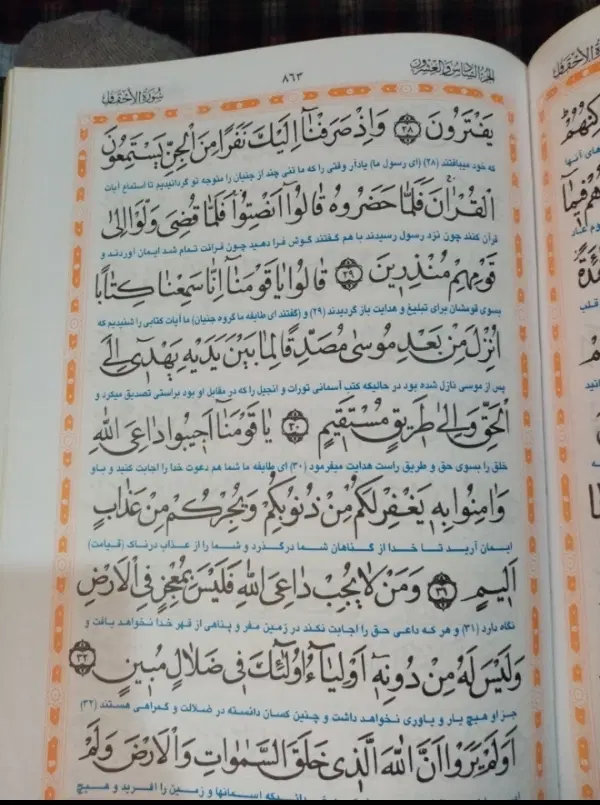 الجزء السادس والعشرون
٨٦٣
سورة الأحقاف
يَفْتَرُونَ ﴿٢٨﴾ وَاِذْ صَرَفْنَآ اِلَيْكَ نَفَرًا مِنَ الْجِنِّ يَسْتَمِعُونَ
که خود میبافتند (٢٨) (ای رسول ما) یادآر وقتی را که ما تنی چند از جنیان را متوجه تو گردانیدیم تا استماع آیات
الْقُرْاٰنَ فَلَمَّا حَضَرُوهُ قَالُوٓا اَنْصِتُوا فَلَمَّا قُضِىَ وَلَّوْا اِلىٰ
قرآن کنند چون نزد رسول رسیدند با هم گفتند گوش فرا دهید چون قرائت تمام شد ایمان آوردند و
قَوْمِهِمْ مُنْذِرِينَ ﴿٢٩﴾ قَالُوا يَا قَوْمَنَآ اِنَّا سَمِعْنَا كِتَابًا
بسوی قومشان برای تبلیغ و هدایت باز گردیدند (٢٩) و (گفتند ای طایفه ما گروه جنیان) ما آیات کتابی را شنیدیم که
اُنْزِلَ مِنْ بَعْدِ مُوسىٰ مُصَدِّقًا لِمَا بَيْنَ يَدَيْهِ يَهْدِىٓ اِلَى
پس از موسی نازل شده بود در حالیکه کتب آسمانی تورات و انجیل را که در مقابل او بود براستی تصدیق میکرد و
الْحَقِّ وَاِلىٰ طَرِيقٍ مُسْتَقِيمٍ ﴿٣٠﴾ يَا قَوْمَنَآ اَجِيبُوا دَاعِىَ اللهِ
خلق را بسوی حق و طریق راست هدایت میفرمود (٣٠) ای طایفه ما شما هم دعوت خدا را اجابت کنید و باو
وَاٰمِنُوا بِهٖ يَغْفِرْ لَكُمْ مِنْ ذُنُوبِكُمْ وَيُجِرْكُمْ مِنْ عَذَابٍ
ایمان آرید تا خدا از گناهان شما درگذرد و شما را از عذاب دردناک (قیامت)
اَلِيمٍ ﴿٣١﴾ وَمَنْ لَا يُجِبْ دَاعِىَ اللهِ فَلَيْسَ بِمُعْجِزٍ فِى الْاَرْضِ
نگاه دارد (٣١) و هر که داعی حق را اجابت نکند در زمین مفر و پناهی از قهر خدا نخواهد یافت و
وَلَيْسَ لَهُ مِنْ دُونِهٖٓ اَوْلِيَآءُ اُولٰٓئِكَ فِى ضَلَالٍ مُبِينٍ ﴿٣٢﴾
جز او هیچ یار و یاوری نخواهد داشت و چنین کسان دانسته در ضلالت و گمراهی هستند (٣٢)
اَوَلَمْ يَرَوْا اَنَّ اللهَ الَّذِى خَلَقَ السَّمٰوَاتِ وَالْاَرْضَ وَلَمْ
که آسمانها و زمین را آفرید و هیچ